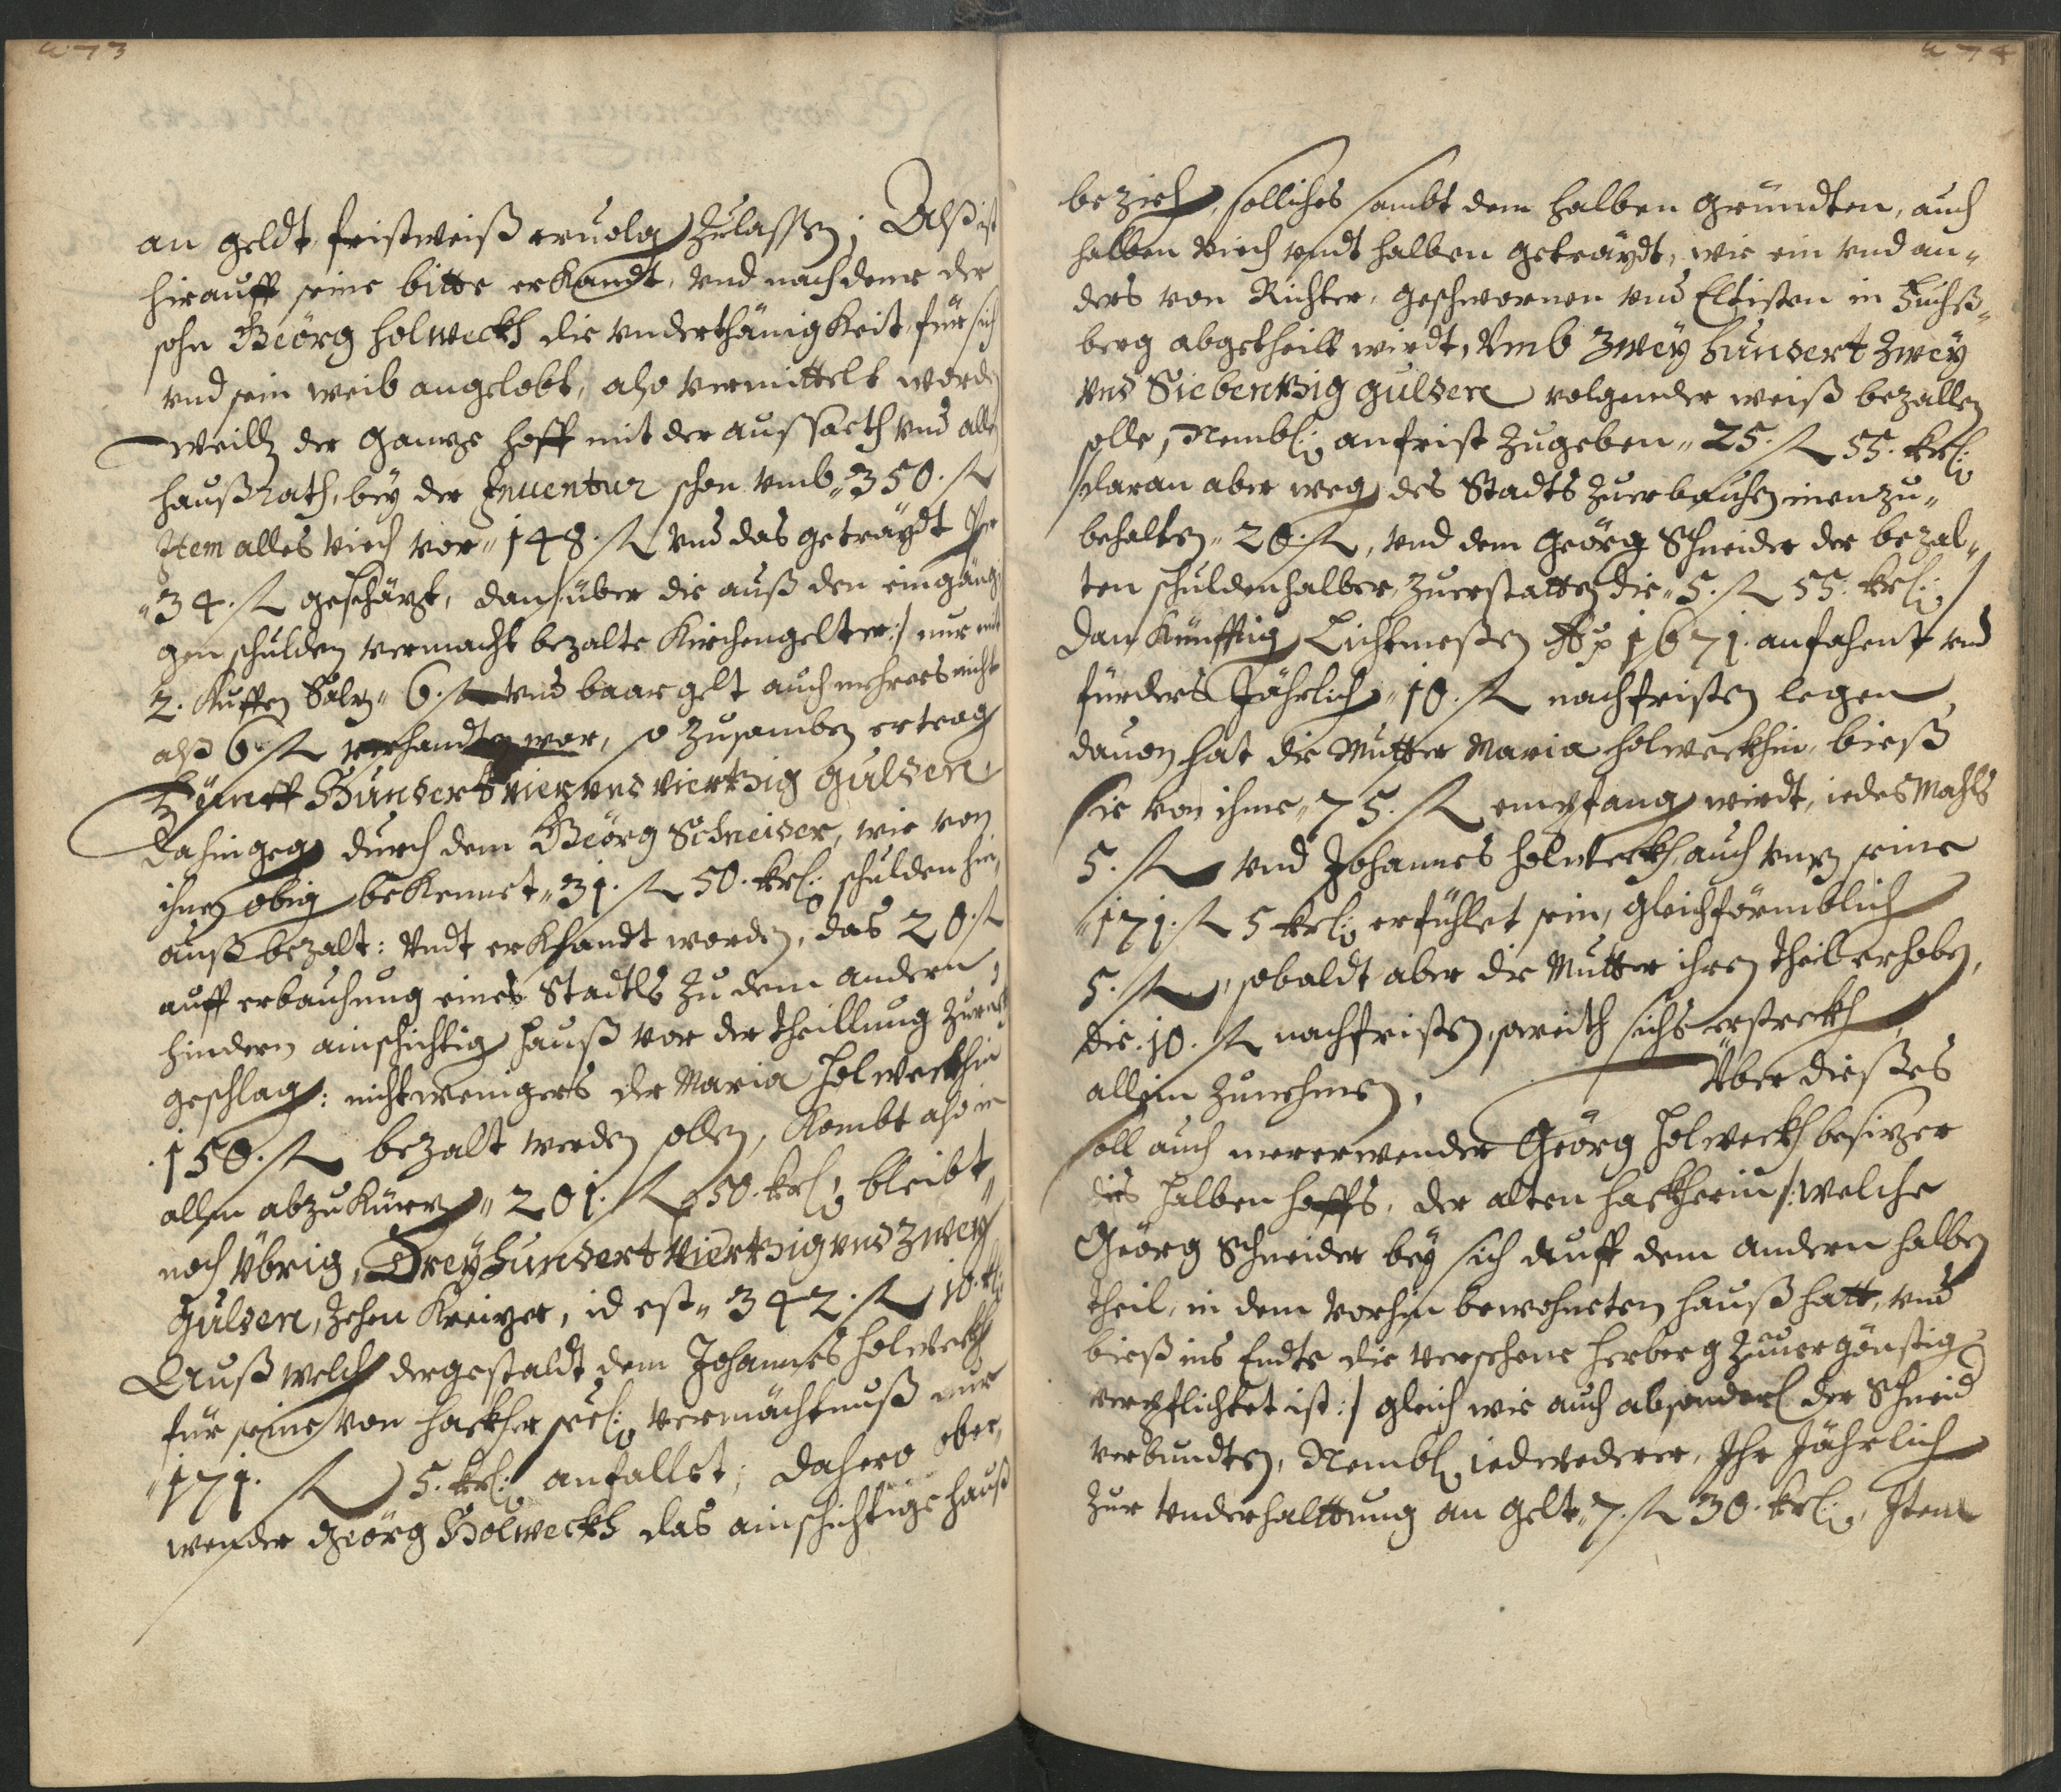 473
an geldt fristweiß ervolg zulassen; Alß ist
hierauff seine bitte erkandt, vnd nach deme der
sohn Geörg Holweckh die vnderthänigkeit für sich
vnd sein weib angelobt, also vermittelt worden
Weilln der ganze hoff mit der aussaeth vnd allen
haußrath, bey der Inuentur schon vmb 350. fl
Item alles viech vor 148. fl vnd das geträydt per
34. fl geschäzt, dan über die auß den eingäng-
gen schulden vermacht bezalte Kirchengelter :/ nur mit
2. Kuffen Salz 6. fl vnd baar gelt auch mehrers nicht
alß 6. fl verhandten war, so zusamben ertragt
Fünff Hundert vier vnd viertzig gulden
Dahingegen durch dem Geörg Schneider, wie von
ihnen obig bekennet 31. fl 50. krl: schulden hin-
auß bezalt: Vndt erkhandt worden, das 20. fl
auff erbauhung eines Stadls zu dem andern,
hindern ainschichtig hauß vor der theillung zurukh
geschlagen: nichtweniger der Maria Holweckhin
150. fl bezalt werden sollen, Kombt also in
allem abzukürzen 201. fl 50. krl: bleibt
noch Übrig, Drey hundert viertzig vnd zwey
Gulden, zehen Kreizer, id est 342. fl 10. kr
Auß welchen dergestaldt dem Johannes Holweckh
für seine von Hackher seel: vermächtnuß nur
171. fl 5. krl: anfallet; Dahero ober-
wender Geörg Holweckh das ainschichtige hauß
474
beziehen, solliches sambt dem halben gründten, auch
halben viech vndt halben geträydt, wie ein vnd an-
ders von Richter, geschwornen vnd Eltisten in Fuchß-
berg abgetheilt wirdt, Vmb Zwey hundert Zwey
vnd Siebentzig gulden volgender weiß bezallen
solle, Nembl: anfrist zugeben 25. fl 55. krl:
daran aber wegen des Stadls zuerbauhen innenzu-
behalten 20. fl, vnd dem Geörg Schneider der bezal-
ten schulden halber, zuerstatten die 5. fl 55. krl:
Dan künfftig Lichtmeßen Ao 1671. anfahent vnd
fürders Jährlich 10. fl nachfristen legen,
dauon hat die Mutter Maria Holweckhin, bieß
sie von ihme 75. fl empfangen wirdt, iedes Mahls
5. fl vnd Johannes Holweckh, auch vmb seine
171. fl 5 krl: erfühlet sein, gleichförmblich
5. fl, sobaldt aber die Mutter ihren theil erhoben,
die 10. fl nachfristen, soweith sichs erstreckh
allein zunehmen.
Über dießes
soll auch mererwender Geörg Holweckh besitzer
dies halben hoffs, der alten Hackherin /: welche
Geörg Schneider bey sich auff dem andern halben
theil, in dem vorhin bewohneten hauß hatt, vnd
bieß ins Endte die versehene herberg zuuergönstig
verpflichtet ist :/ gleich wie auch absonderl: der Schneid
verbundten, Nembl: iedwederer, Ihr Jährlich
zur vnderhalttung an gelt 7. fl 30. krl: Item